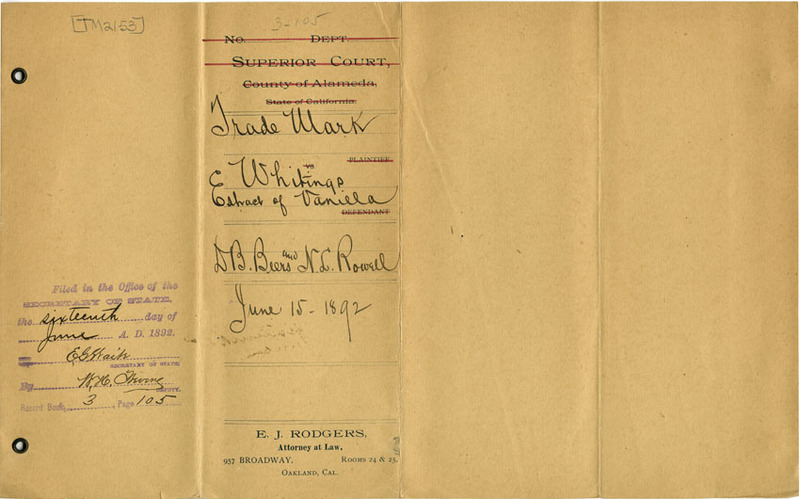 [TM2153]
3-105
No. DEPT.
SUPERIOR COURT,
County of Alameda,
State of California.
Trade Mark
PLAINTIFF
vs
E Whitings
Extract of Vanilla
DEFENDANT
D B. Biers and N. L. Rowell
June 15 - 1892
E. J. RODGERS,
Attorney at Law,
957 BROADWAY. ROOMS 24 & 25.
OAKLAND, CAL.
Filed in the Office of the
SECRETARY OF STATE,
the sixteenth day of
June A. D. 1892.
E G Waite
SECRETARY OF STATE
By
DEPUTY.
Record Book 3, Page 105